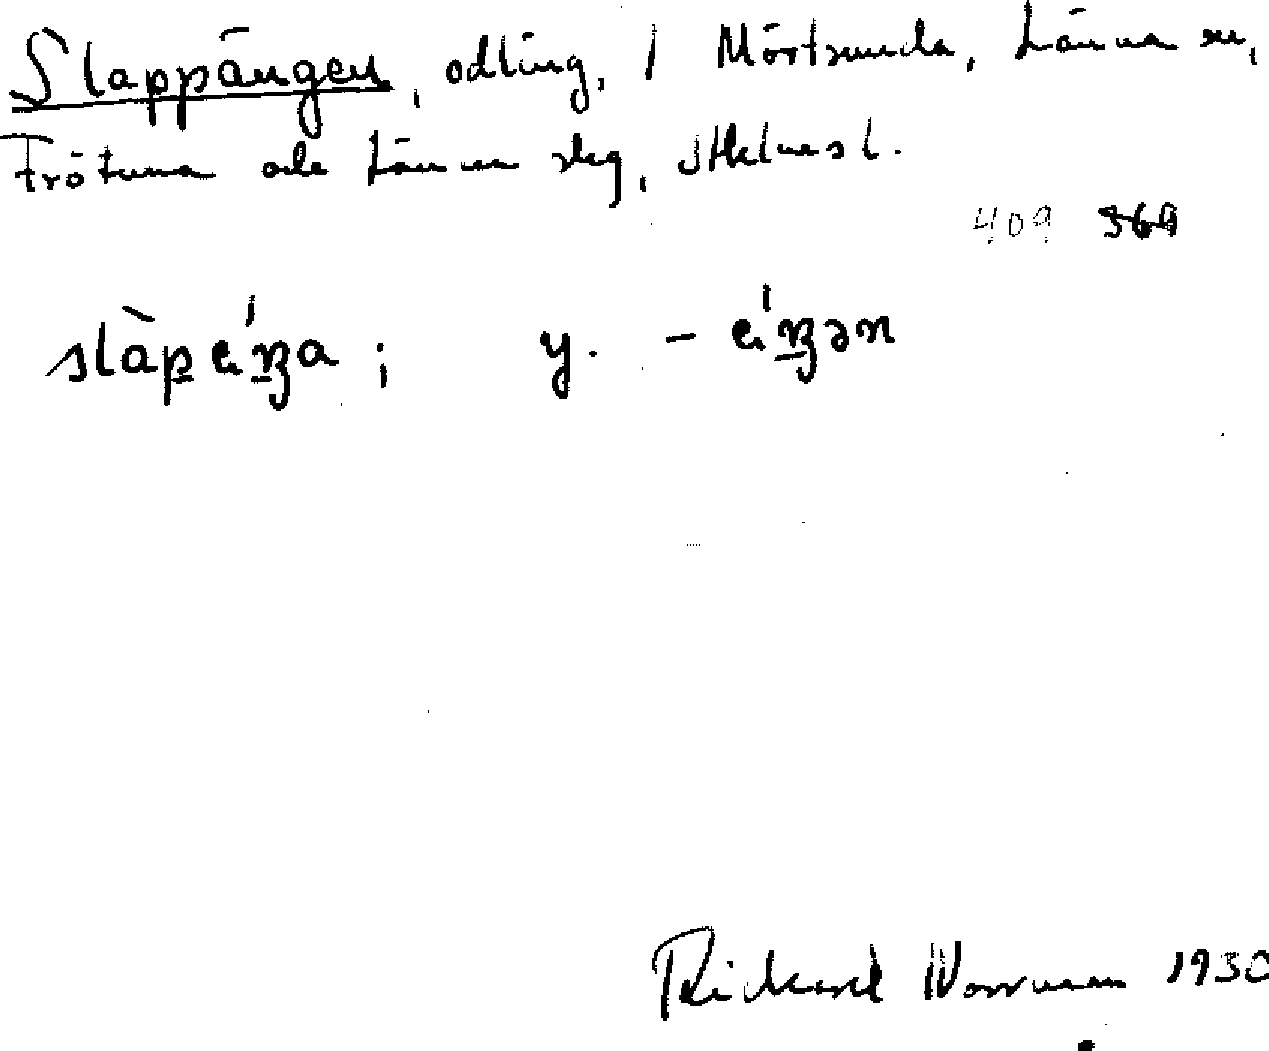 Slappängen, odling, 1 Mörtsunda, Länna sn,
Frötuna och Länna skg, Sthlms l.
409 369
slàpɛ́ŋa ; y. - ɛ́ŋən
Rickard Norrman 1930